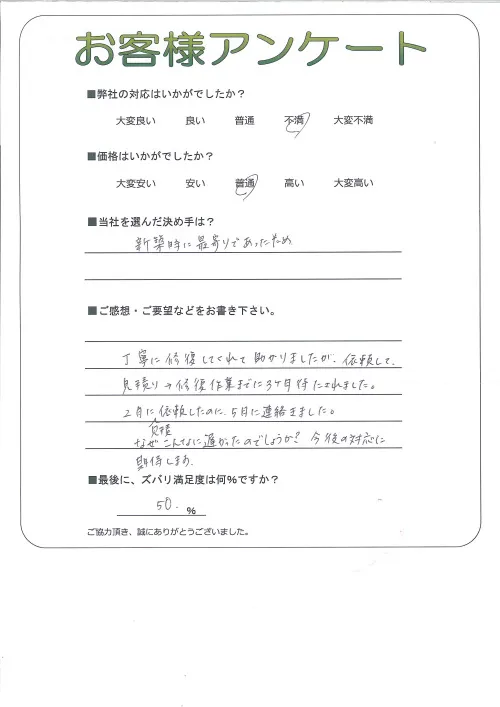 お客様アンケート
■弊社の対応はいかがでしたか？
大変良い 良い 普通 不満 大変不満
■価格はいかがでしたか？
大変安い 安い 普通 高い 大変高い
■当社を選んだ決め手は？
新築時に最寄りであったため
■ご感想・ご要望などをお書き下さい。
丁寧に修復してくれて助かりましたが、依頼して、
見積り→修復作業までに3ヶ月待たされました。
2月に依頼したのに、5月に連絡きました。
なぜこんなに遅かったのでしょうか？ 今後の対応に
期待します。
■最後に、ズバリ満足度は何%ですか？
50. %
ご協力頂き、誠にありがとうございました。